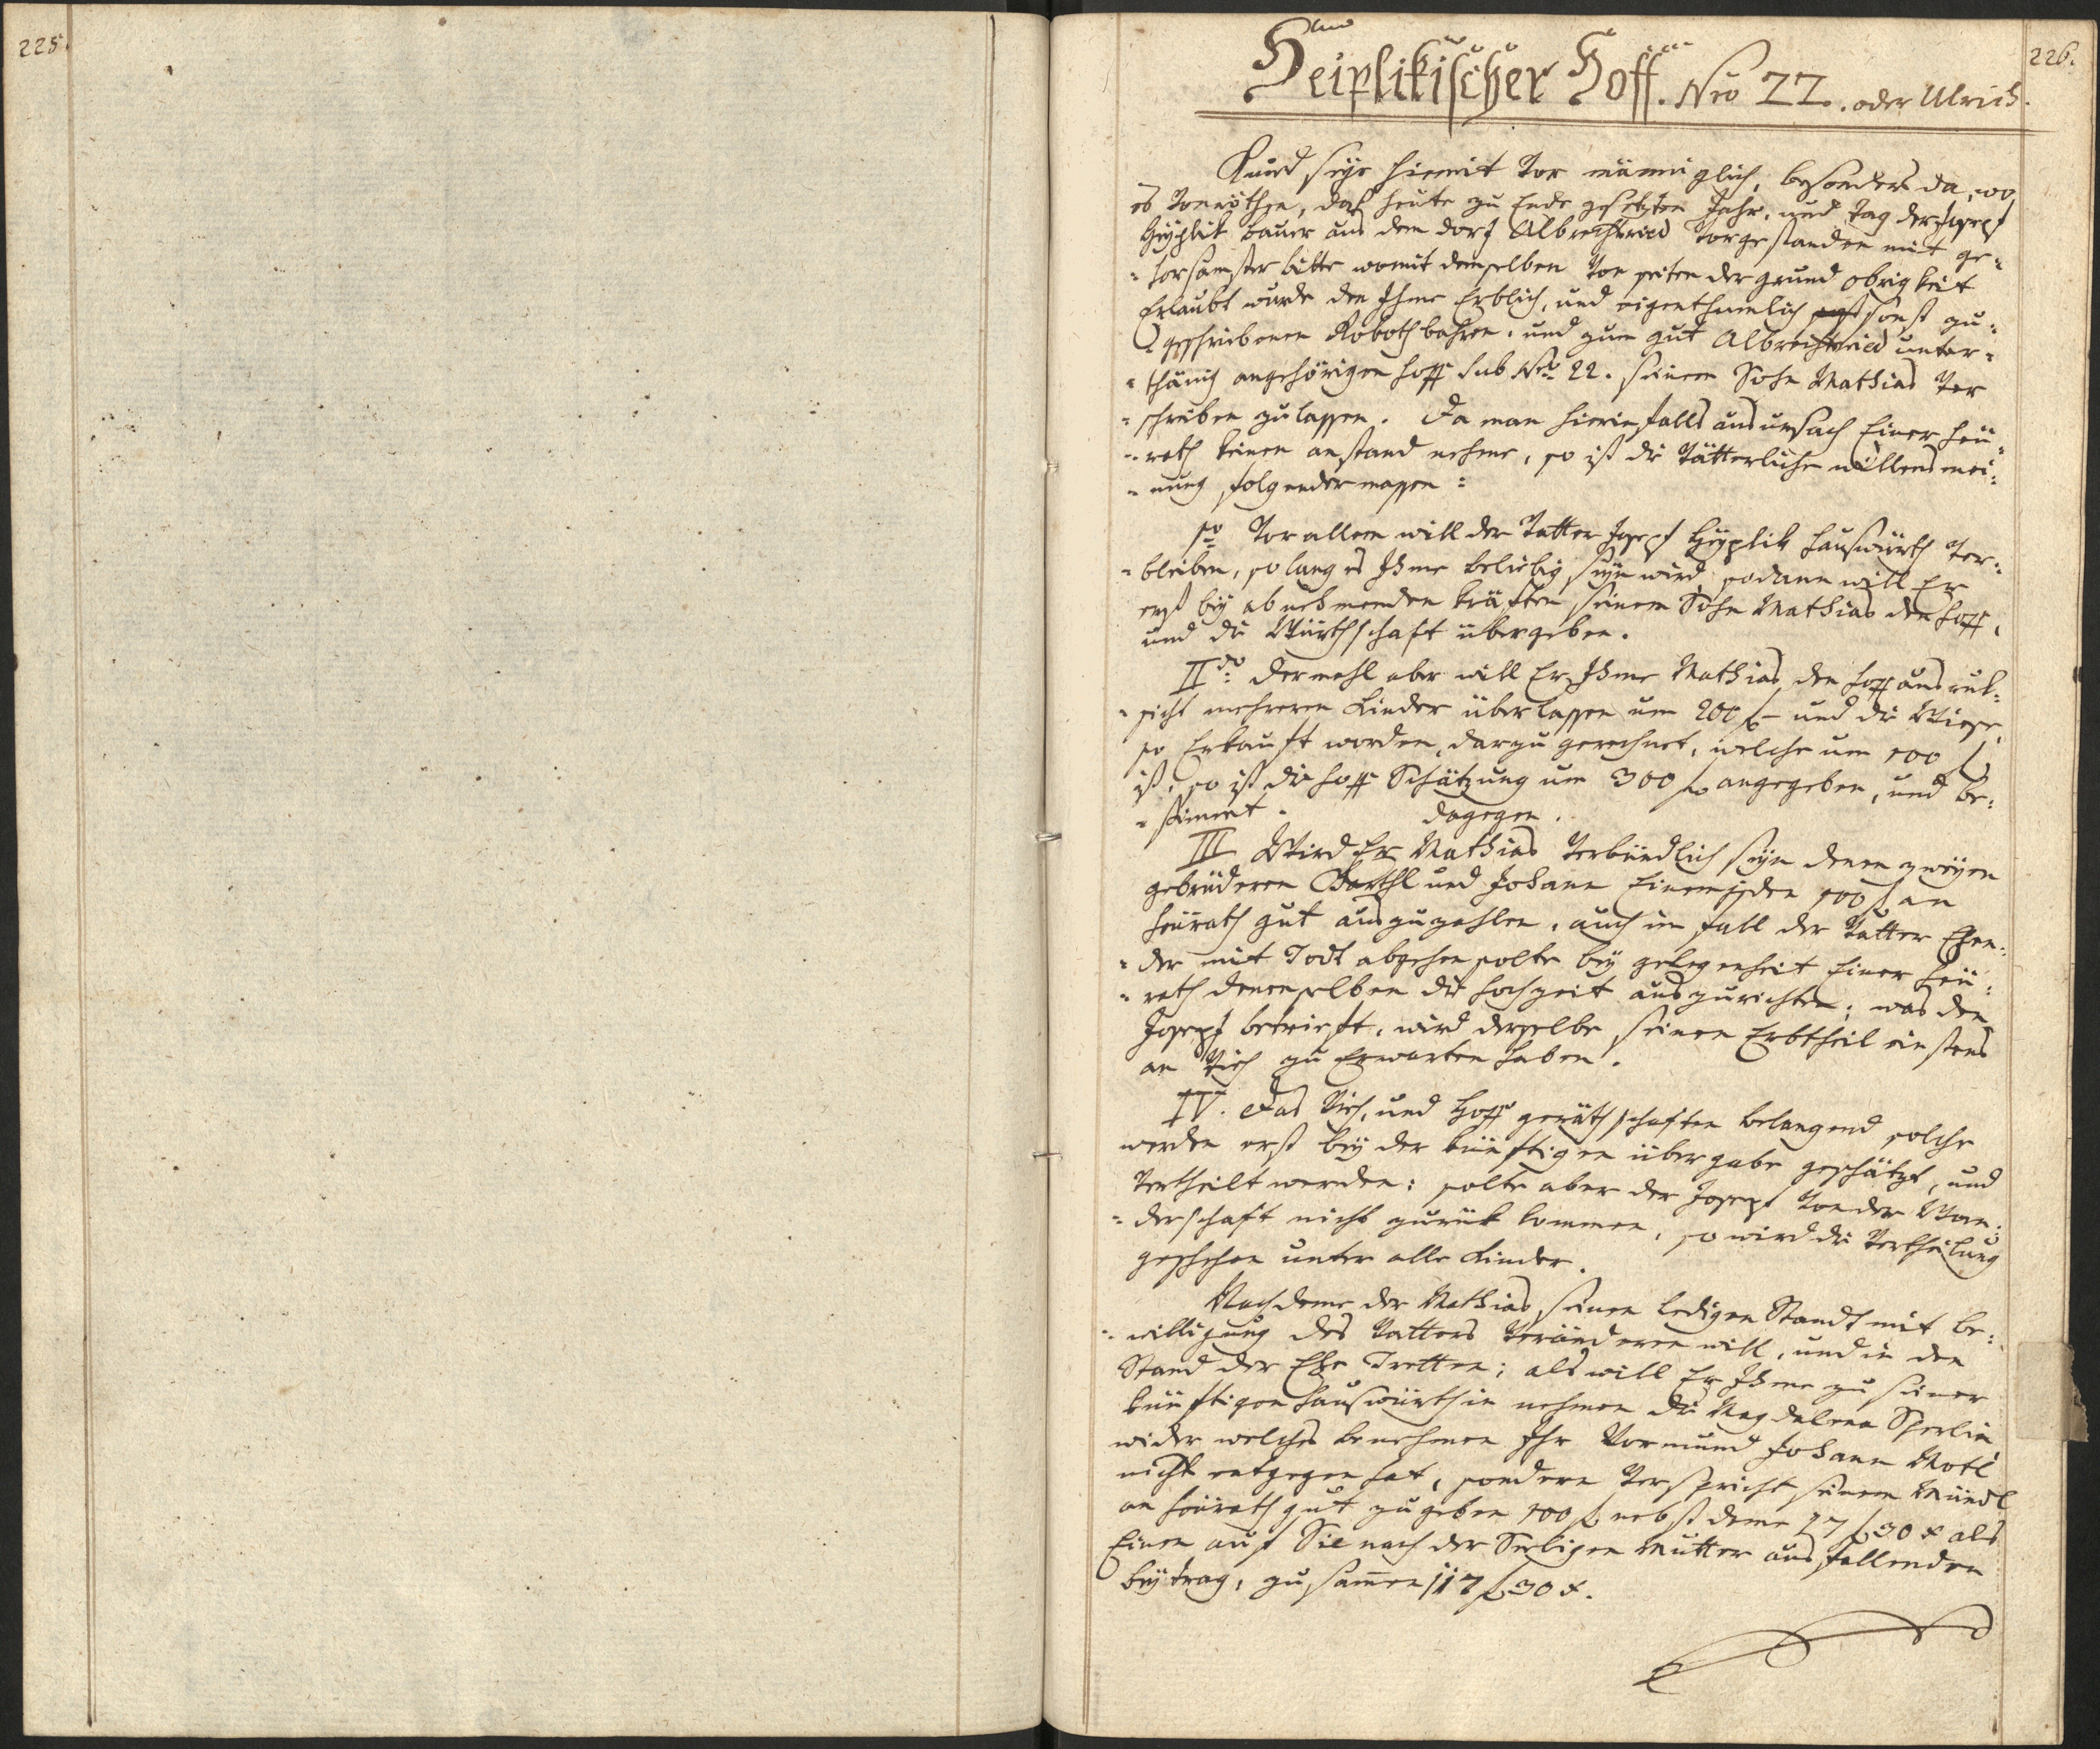 225.
226.
Heiplikischer Hoff. Nro 22. oder Ulrich.
Kund seye hiemit vor männiglich, besonders da, wo
es vonnöthen, daß heute zu Ende gesetzten Jahr, und Tag der Joseph
Heyplik bauer aus dem dorf Albrechtsried vorgestanden mit ge¬
¬horsamster bitte womit demselben von seiten der grund obrigkeit
Erlaubt wurde den Ihme Erblich, und eigenthumlich sonst zu¬
¬geschriebenen Robothbahren, und zum gut Albrechtsried unter¬
¬thänig angehörigen hoff sub Nro 22. seinem Sohn Mathias ver
¬schreiben zu lassen. Da man hierinfalls aus ursach Einer heü¬
¬rath keinen anstand nehme, so ist die vätterliche willens mei¬
¬nung folgender massen:
1mo Vor allem will der Vatter Joseph Heyplik hauswürth ver¬
¬bleiben, so lang es Ihme beliebig seyn wird, sodann will Er
erst bey abnehmenden kräften seinem Sohn Mathias den hoff,
und die Würthschaft übergeben.
IIdo dermahl aber will Er Ihme Mathias den hoff aus ruk¬
¬sicht mehreren Kinder überlassen um 200 f und die Wiese,
so Erkauft worden, darzu gerechnet, welche um 100 f
ist, so ist die hoff Schätzung um 300 f angegeben, und be¬
¬stimmt. dagegen.
III Wird Er Mathias verbündlich seyn denen zweyen
gebrüderen Barthl und Johann Einem jeden 100 f an
heürath gut auszuzahlen, auch im fall der Vatter Ehen¬
¬der mit Todt abgehen solte bey gelegenheit Einer heü¬
¬rath denenselben die hochzeit auszurichten; was den
Joseph betrieft, wird derselbe seinen Erbtheil einstens
an Vieh zu Erwarten haben.
IV. Das Vieh, und Hoff geräthschaften belangend solche
werden erst bey der künftigen übergabe geschätzt, und
vertheilt werden: solte aber der Joseph von der Wan¬
¬derschaft nicht zurük kommen, so wird die vertheilung
geschehen unter alle Kinder.
Nachdeme der Mathias seinen ledigen Standt mit be¬
¬willigung des Vatters veränderen will, und in den
Stand der Ehe Tretten; als will Er Ihme zu seiner
künftigen hauswürthin nehmen die Magdalena Sperlin,
wider welches benehmen Ihr Vormund Johann Motl
nicht entgegen hat, sondern verspricht seinem Mündl
an heürath gut zu geben 100 f nebst deme 17 f 30 x als
Einen auf Sie nach der Seeligen Mutter aus fallenden
beytrag, zusamen 117 f 30 x.